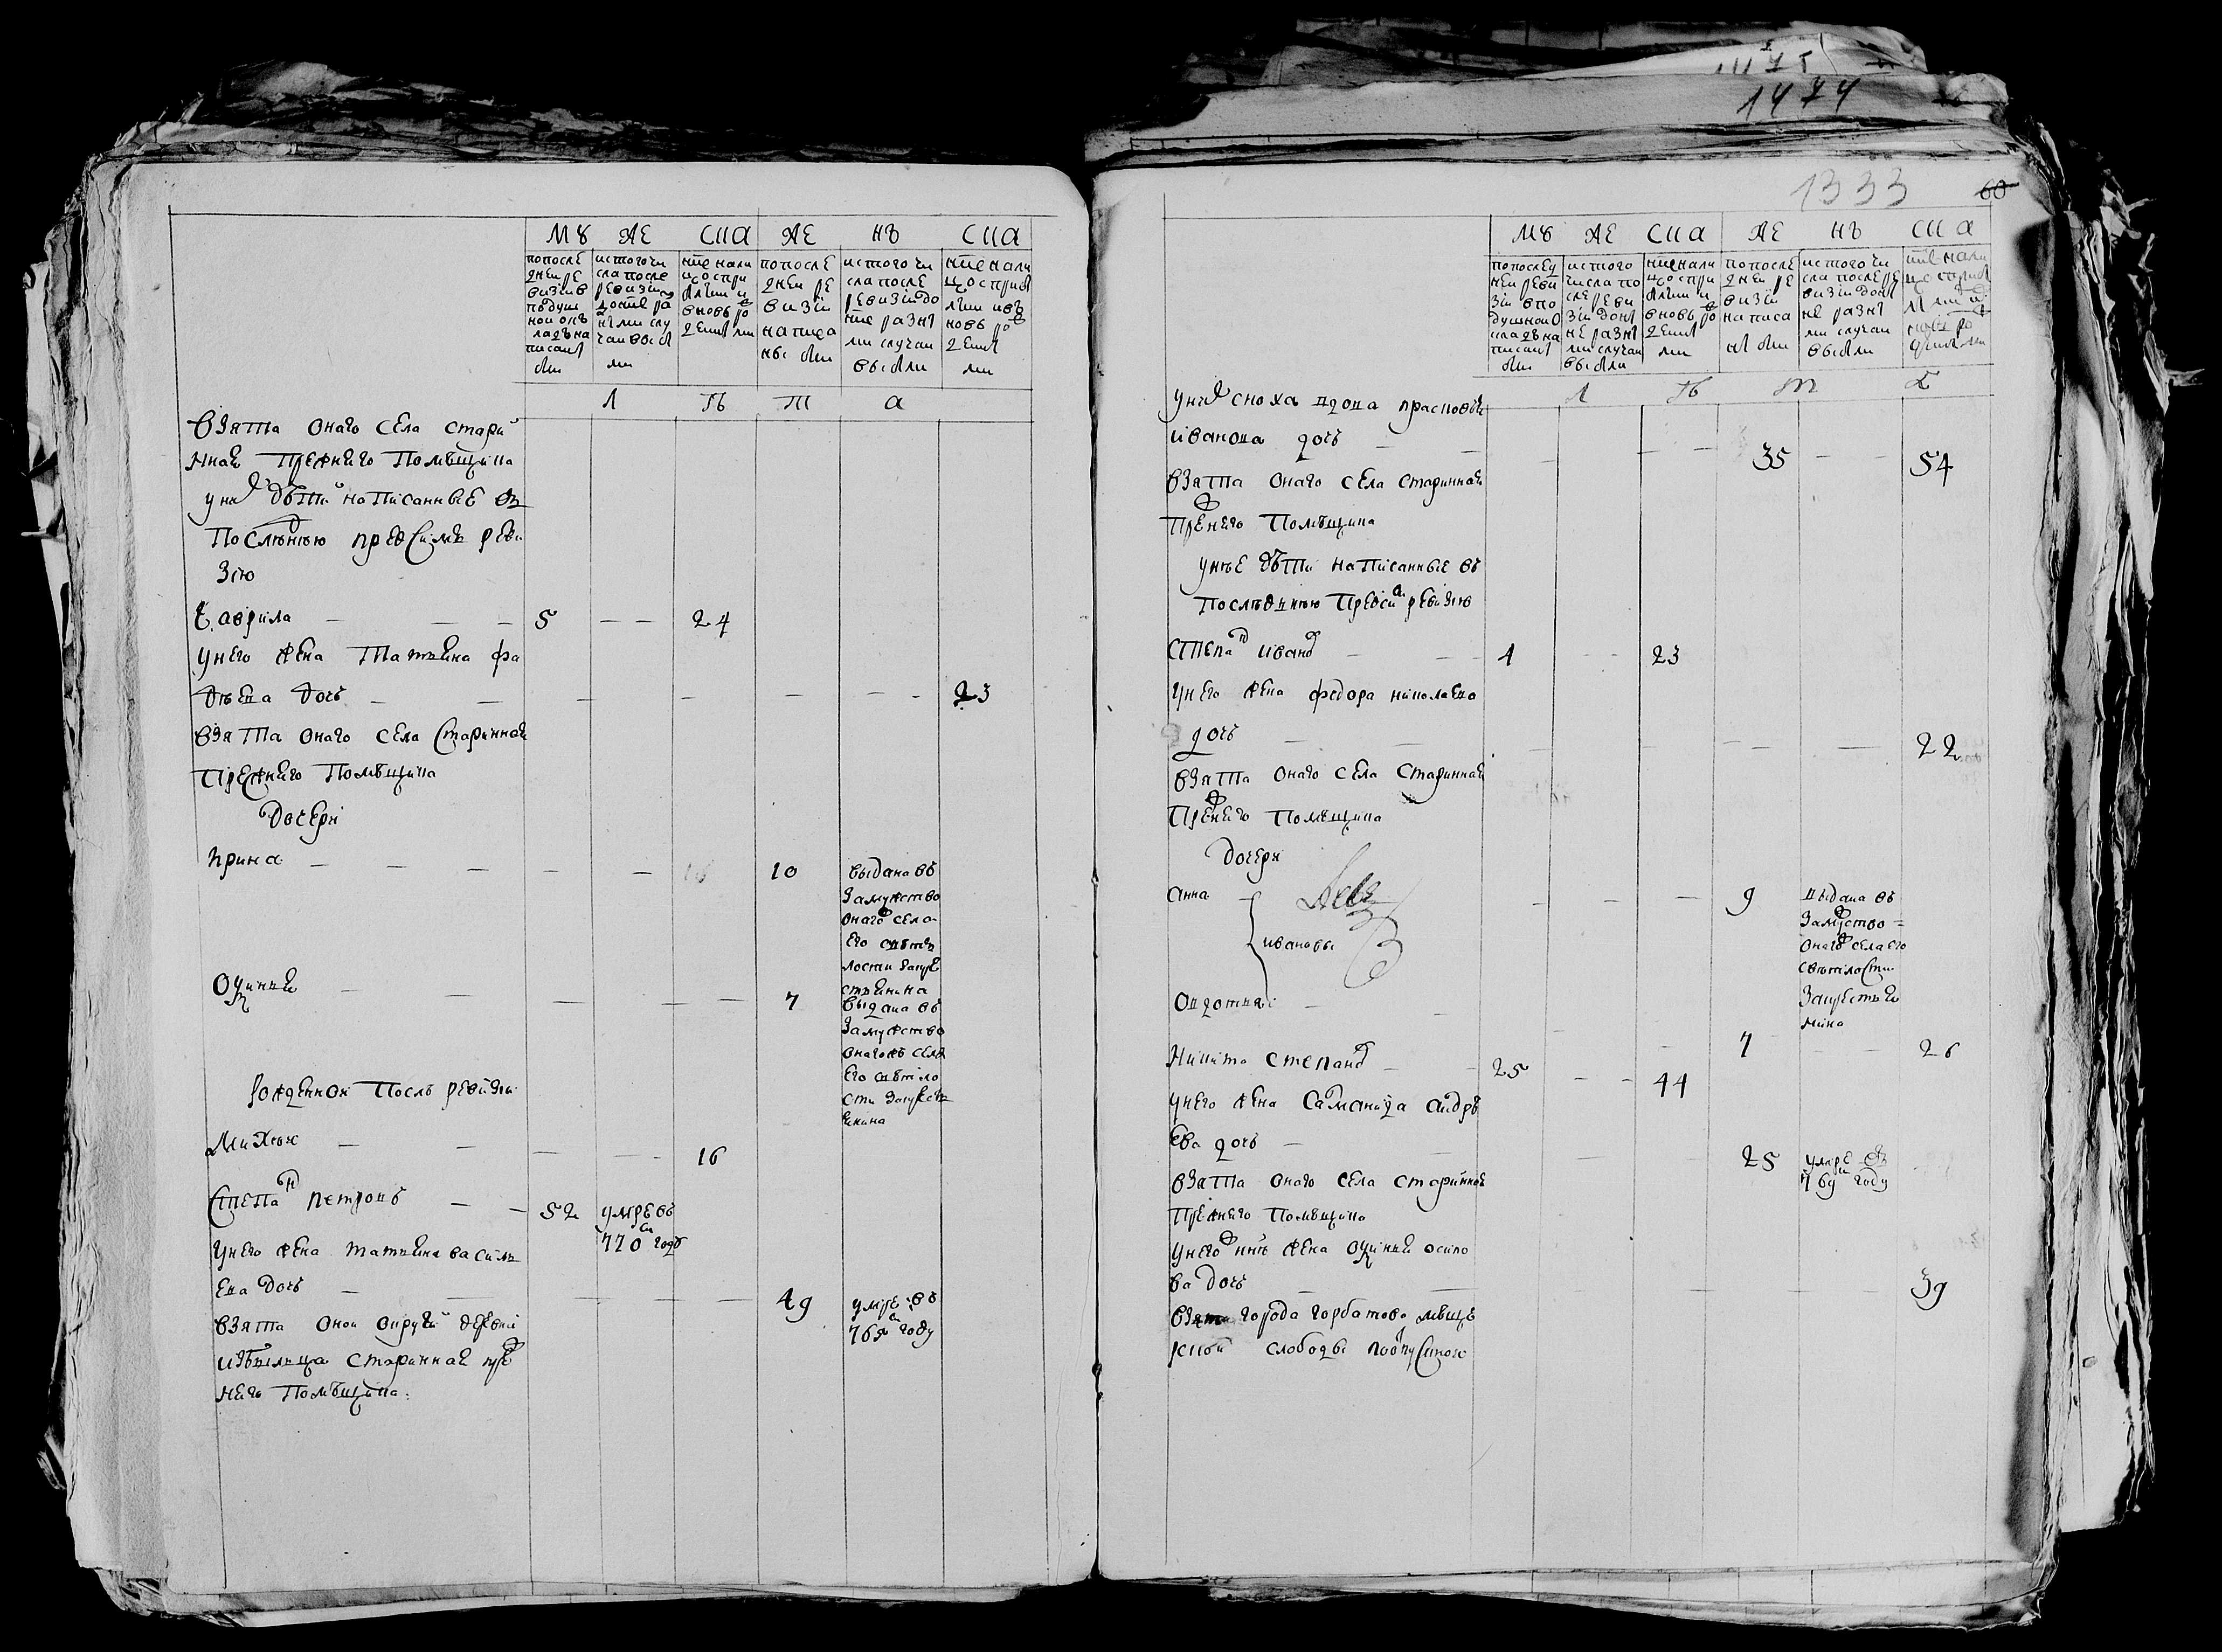 1474
МУ ЖЕ СКА ЖЕ НЪ СКА
по после
дней ре
визий в
подуш
ной ок
ладъ на
писаны
были
ис того чи
сла после
ревизии
до ныне ра
зными слу
чаи выбы
ли
ныне нали
цо с при
былыми и
вновь ро
жденными
по после
дней ре
визии
написа
ны были
ис того чи
сла после
ревизии до
ныне разны
ми случаи
выбыли
ныне нали
цо с прибы
лыми и въ
новь ро
жденны
ми
Л Ѣ Т А
взята онаго села стари
нная прежняго помѣщика
у них дѣти написанные въ
последнюю пред сим реви
зию
Гаврила 5 24
у него жена Татьяна Фа
дѣева дочь 23
взята онаго села старинная
прежняго помѣщика
дочери
Ирина 10 выдана въ
замужство
онаго села
его свѣт
лости за кре
стьянина
Овдотья 7 выдана въ
замужство
онаго жъ села
его свѣтло
сти за кресть
янина
рожденной послѣ ревизии
Михей 16
Степанъ Петровъ 52 умре въ
770м году
у него жена Татьяна Василь
ева дочь 49 умре въ
765м году
взята оной округи деревни
Избылца старинная преж
няго помѣщика
1333
60
МУ ЖЕ СКА ЖЕ НЪ СКА
по послед
ней реви
зии в по
душной о
кладъ на
писаны
были
ис того
числа по
сле реви
зии до ны
не разны
ми случаи
выбыли
ныне нали
цо с при
былыми и
вновь ро
жденны
ми
по после
дней ре
визии
написа
ны были
ис того чи
сла после ре
визии до ны
не разны
ми случаи
выбыли
ныне нали
цо с прибы
лыми и
новь ро
жденными
Л Ѣ Т
у них сноха вдова Прасковья
Иванова дочь 35 54
взята онаго села старинная
прежняго помѣщика
у нее дѣти написанные въ
последнюю пред сим ревизию
Степанъ Ивановъ 4 23
у него жена Федора Николаева
дочь 22
взята онаго села старинная
прежняго помѣщика
дочери
Анна 9 выдана въ
замужство
онаго жъ села его
свѣтлости
за крестья
нина
Ивановы
Овдотья 7 26
Никита Степановъ 25 44
у него жена Саманида Андрѣ
ева дочь 25 умре въ
769м году
взята онаго села старинная
прежняго помѣщика
у него жъ жена осипо
ва дочь 39
взята города Горбатова
слободы